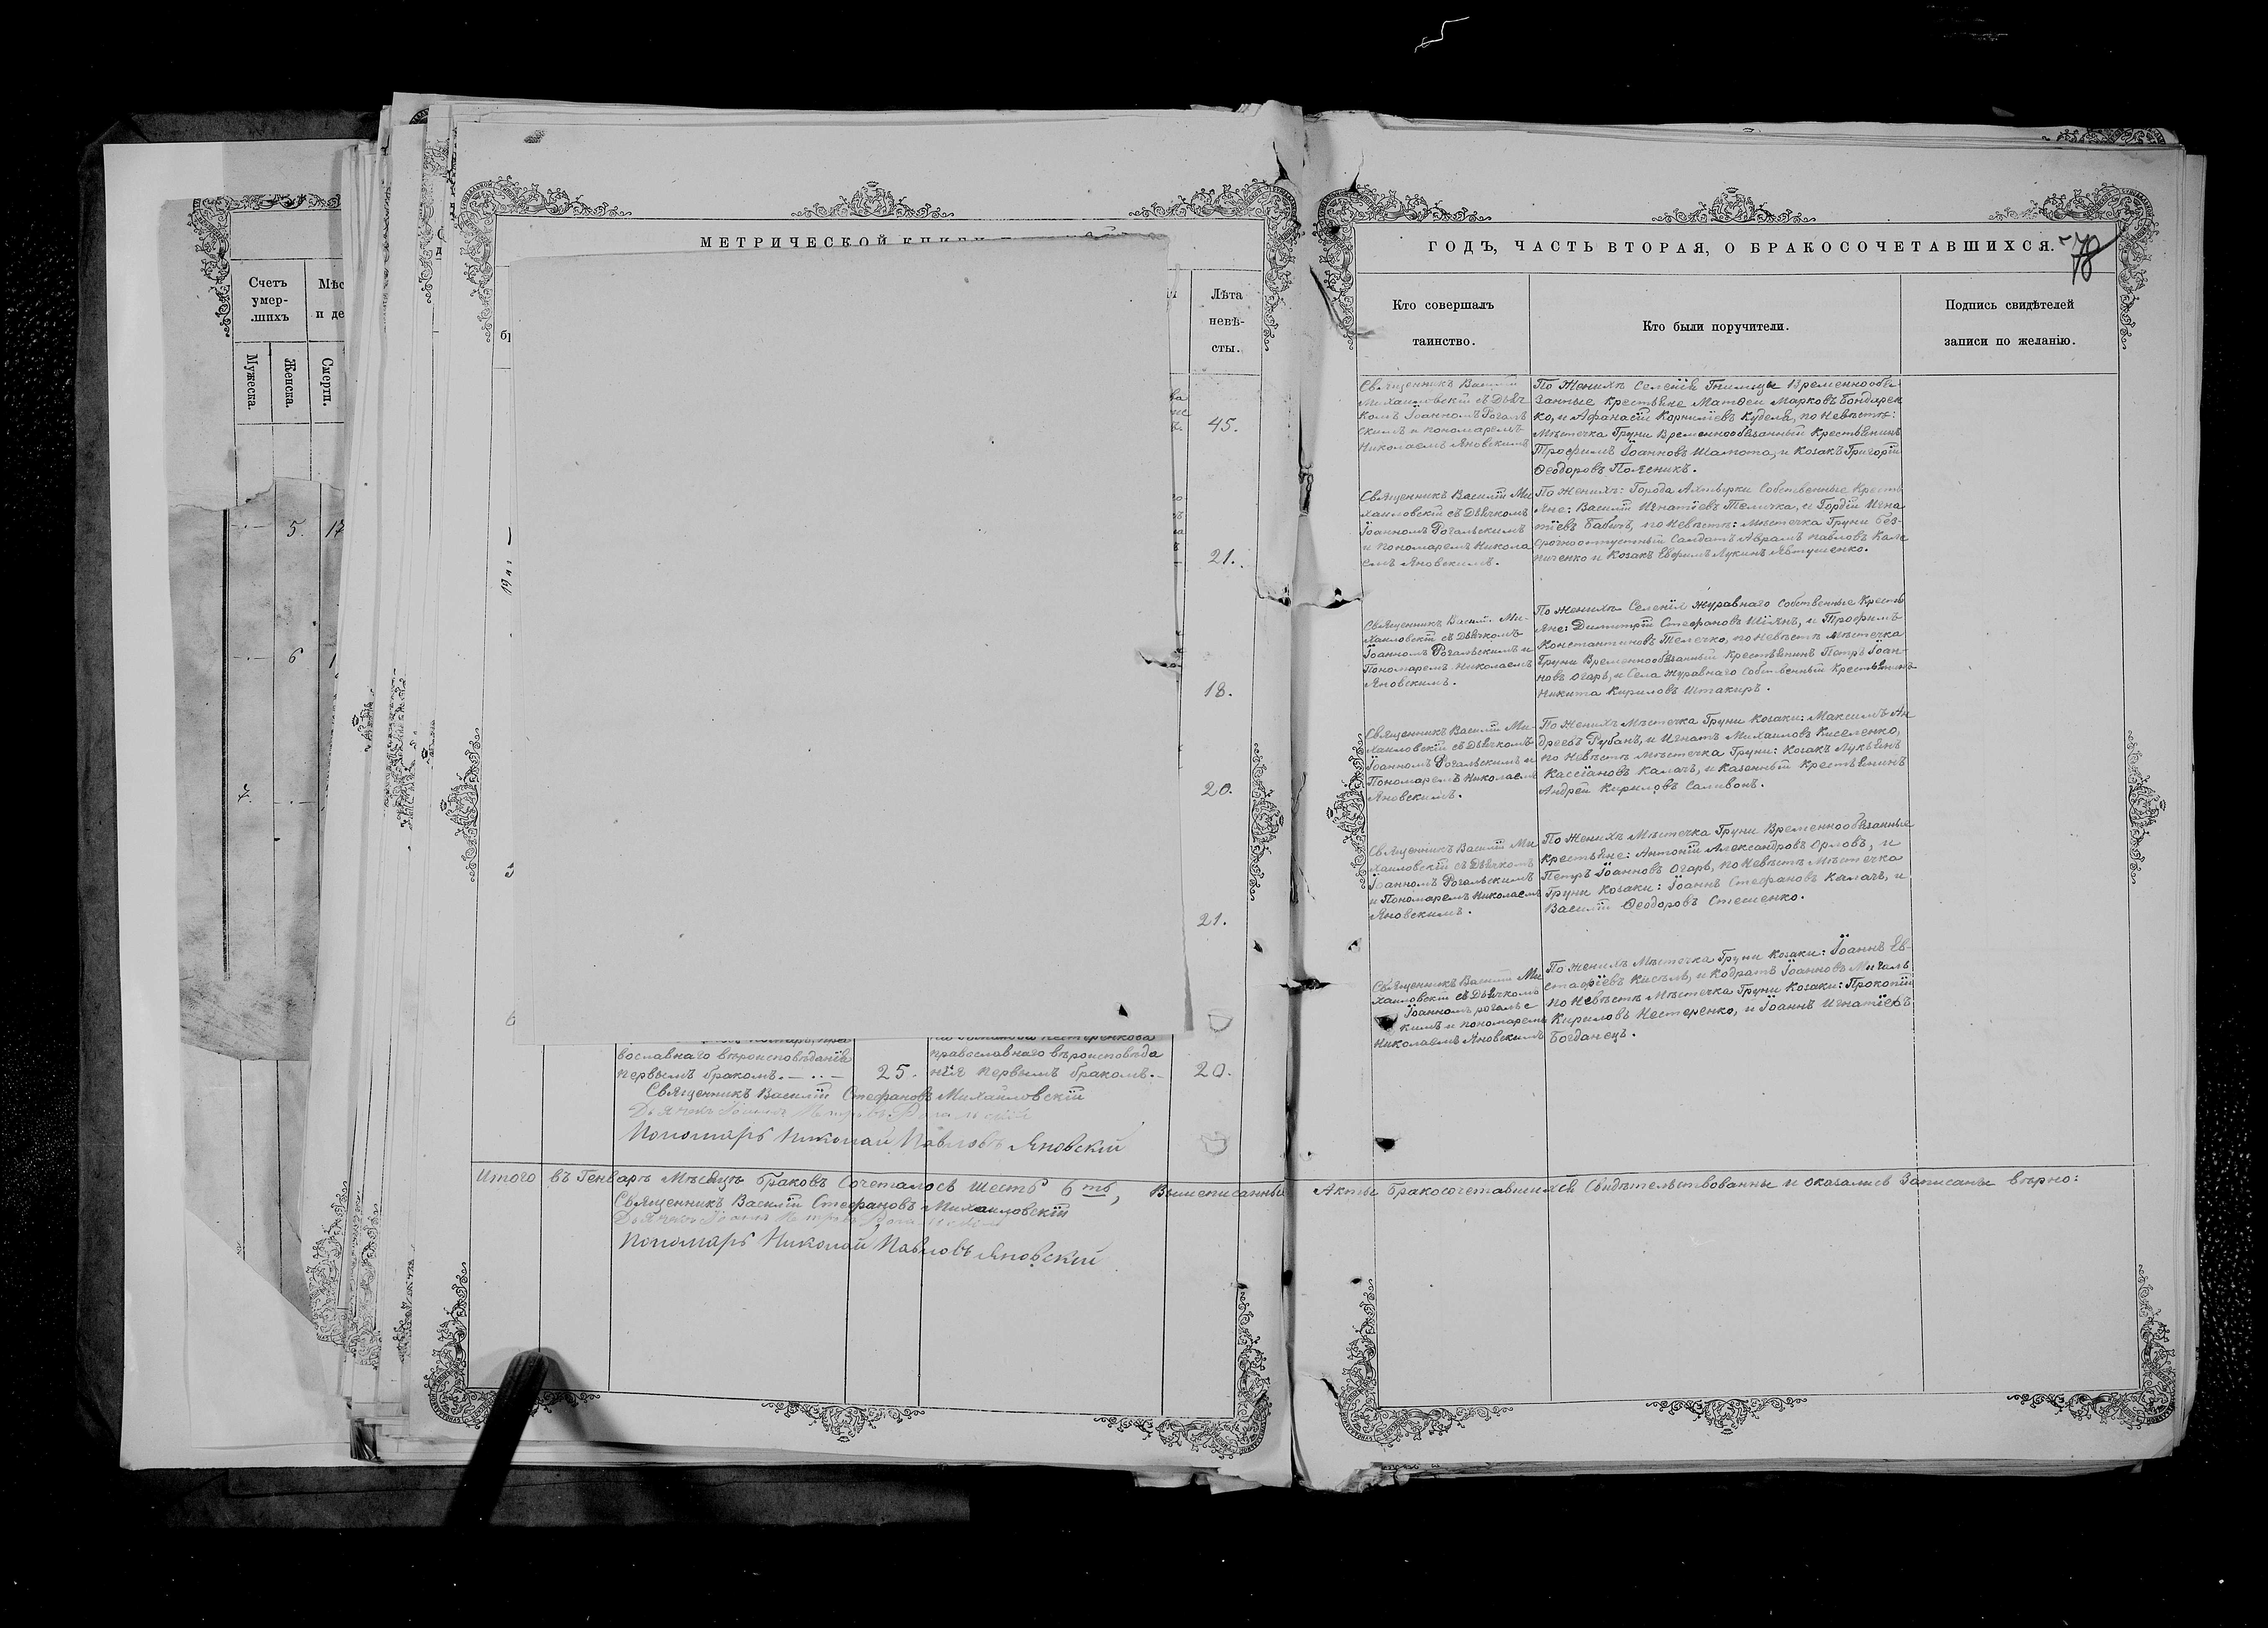 Счетъ
умер-
шихъ
Мужеска.
Женска.
Смерти.
5.
17
6
7.
МЕТРИЧЕСКОЙ
Лѣта
невѣ-
сты.
45.
21.
18.
20.
21.
вославнаго вѣроисповѣданія
первымъ бракомъ.
25.
православнаго вѣроисповѣда
нія первымъ бракомъ.
20.
Священникъ Василій Стефановъ Михаиловскій
Пономарь Николай Павловъ Яновскій
Итого въ Генварѣ Мѣсяцѣ браковъ Сочеталось шесть 6ть, Вышеписанные Акты бракосочетавшихся Свидѣтельствованны и оказались Записаны вѣрно:
Священникъ Василій Стефановъ Михаиловскій
Пономарь Николай Павловъ Яновскій
ГОДЪ, ЧАСТЬ ВТОРАЯ, О БРАКОСОЧЕТАВШИХСЯ.
78
Кто совершалъ
таинство.
Кто были поручители.
Подпись свидѣтелей
записи по желанію.
Священникъ Василій
Михаиловскій съ Дьяч
комъ Іоанномъ Рогаль
скимъ и пономаремъ
Николаемъ Яновскимъ
По Женихѣ Селенія Гнилицы Временнообя
занные крестьяне Матѳеи Марковъ Бондарен
ко, и Афанасій Корниліевъ Кудела, по Невѣстѣ:
Мѣстечка Груни Временнообязанный Крестьянинъ
Трофимъ Іоанновъ Шамота, и Козакъ Григорій
Ѳеодоровъ Полѣеникъ.
Священникъ Василій Ми
хаиловскій съ Дьячкомъ
Іоанномъ Рогальскимъ
и Пономаремъ Никола
емъ Яновскимъ.
По Женихѣ: Города Ахтырки Собственные Кресть
яне: Василій Игнатіевъ Теличка, и Гордій Игна
тіевъ Бабичъ, по Невѣстѣ: Мѣстечка Груни без-
срочноотпустный Салдатъ Аврамъ Павловъ Кали
ниченко и Козакъ Евфимъ Лукинъ Явтушенко.
Священникъ Василій Ми-
хаиловскій съ Дьячкомъ
Іоанномъ Рогальскимъ и
Пономаремъ Николаемъ
Яновскимъ.
По Женихѣ Селенія Журавнаго Собственные Кресть
яне: Димитрій Стефановъ Шіянъ, и Трофимъ
Константиновъ Телечко, по Невѣстѣ Мѣстечка
Груни Временнообязанный Крестьянинъ Петръ Іоан-
новъ Огарь, и Села Журавнаго Собственный Крестьянинъ
Никита Кириловъ Штакиръ.
Священникъ Василій Ми-
хаиловскій съ Дьячкомъ
Іоанномъ Рогальскимъ и
Пономаремъ Николаемъ
Яновскимъ.
По Женихѣ Мѣстечка Груни Козаки: Максимъ Ан
дреевъ Рубанъ, и Игнатъ Михаиловъ Киселенко,
по Невѣстѣ Мѣстечка Груни: Козакъ Лукьянъ
Кассіановъ Калачъ, и Казенный Крестьянинъ
Андрей Кириловъ Саливонъ.
Священникъ Василій Ми
хаиловскій съ Дьячкомъ
Іоанномъ Рогальскимъ
и Пономаремъ Николаемъ
Яновскимъ.
По Женихѣ Мѣстечка Груни Временнообязанные
Крестьяне: Антоній Александровъ Орловъ, и
Петръ Іоанновъ Огарь, по Невѣстѣ Мѣстечка
Груни Козаки: Іоаннъ Стефановъ Калачъ, и
Василій Ѳеодоровъ Стешенко.
Священникъ Василій Ми
хаиловскій съ Дьячкомъ
Іоанномъ рогальс
кимъ и пономаремъ
Николаемъ Яновскимъ
По Женихѣ Мѣстечка Груни Козаки: Іоаннъ Ев-
стафіевъ Кисѣль, и Кодратъ Іоанновъ Мигаль
по Невѣстѣ Мѣстечка Груни Козаки: Прокопій
Кириловъ Нестеренко, и Іоаннъ Игнатіевъ
Богданецъ.